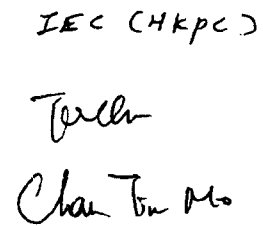 IEC (HKPC)
Chan Tin Mo